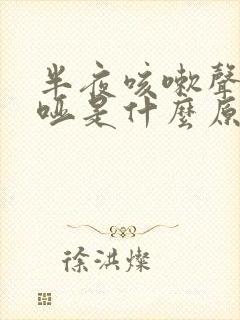 半夜咳嗽聲
啞是什麼原
徐洪燦